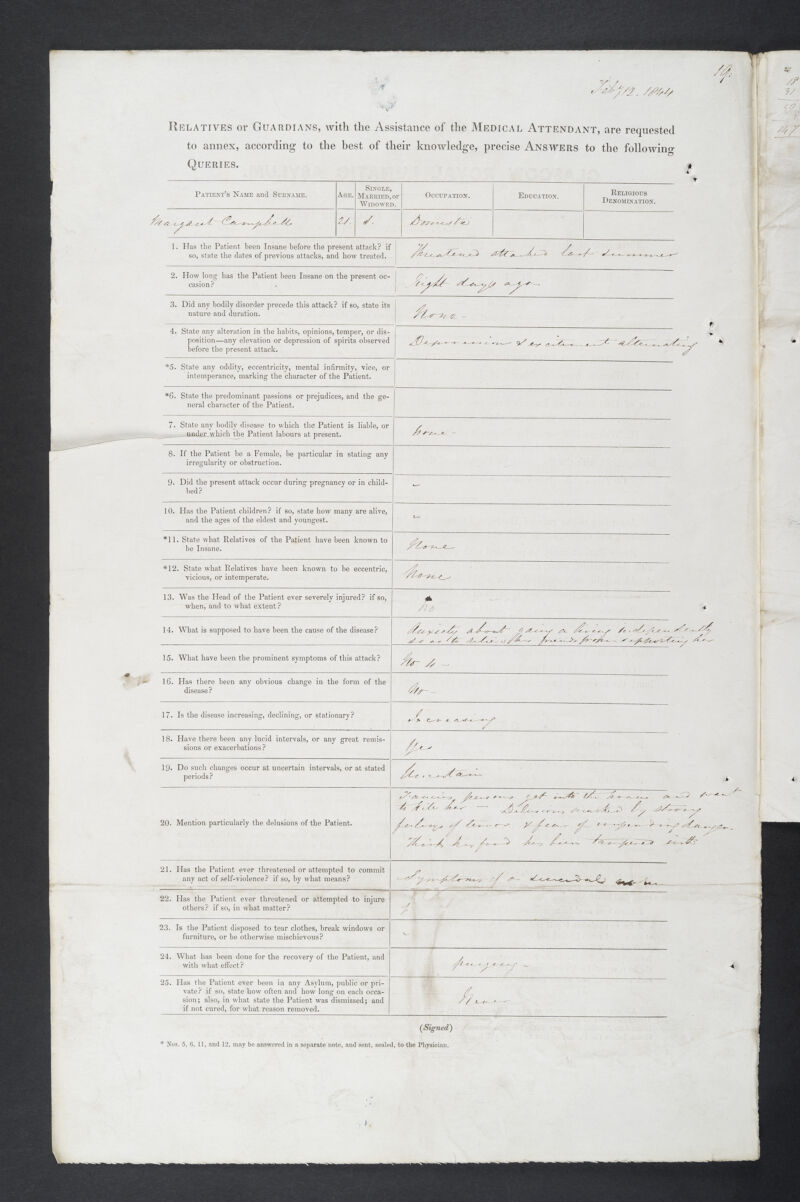 19.
Feby 12. 1844
RELATIVES or GUARDIANS, with the Assistance of the MEDICAL ATTENDANT, are requested
to annex, according to the best of their knowledge, precise ANSWERS to the following
QUERIES.
PATIENT'S NAME and SURNAME. AGE. SINGLE, MARRIED, or WIDOWED. OCCUPATION. EDUCATION. RELIGIOUS DENOMINATION.
Margaret Campbell 21. S. Domestic
1. Has the Patient been Insane before the present attack? if
so, state the dates of previous attacks, and how treated.
Threatened attacked last summer
2. How long has the Patient been Insane on the present oc-
casion?
Eight days ago
3. Did any bodily disorder precede this attack? if so, state its
nature and duration.
None -
4. State any alteration in the habits, opinions, temper, or dis-
position—any elevation or depression of spirits observed
before the present attack.
Depression & excitement alternating
*5. State any oddity, eccentricity, mental infirmity, vice, or
intemperance, marking the character of the Patient.
*6. State the predominant passions or prejudices, and the ge-
neral character of the Patient.
7. State any bodily disease to which the Patient is liable, or
under which the Patient labours at present.
None -
8. If the Patient be a Female, be particular in stating any
irregularity or obstruction.
9. Did the present attack occur during pregnancy or in child-
bed?
-
10. Has the Patient children? if so, state how many are alive,
and the ages of the eldest and youngest.
-
*11. State what Relatives of the Patient have been known to
be Insane.
None
*12. State what Relatives have been known to be eccentric,
vicious, or intemperate.
None
13. Was the Head of the Patient ever severely injured? if so,
when, and to what extent?
No
14. What is supposed to have been the cause of the disease?
Anxiety about gaining a living independently
so as to relieve her friends from supporting her
15. What have been the prominent symptoms of this attack?
No 4 -
16. Has there been any obvious change in the form of the
disease?
No -
17. Is the disease increasing, declining, or stationary?
Increasing
18. Have there been any lucid intervals, or any great remis-
sions or exacerbations?
Yes
19. Do such changes occur at uncertain intervals, or at stated
periods?
Uncertain
20. Mention particularly the delusions of the Patient.
Fancies persons get into the house and want
to kill her — Delusions marked by strong
feelings of terror & fear of impending danger.
Thinks her food has been tampered with
21. Has the Patient ever threatened or attempted to commit
any act of self-violence? if so, by what means?
Symptoms of a suicidal
22. Has the Patient ever threatened or attempted to injure
others? if so, in what matter?
23. Is the Patient disposed to tear clothes, break windows or
furniture, or be otherwise mischievous?
-
24. What has been done for the recovery of the Patient, and
with what effect?
purging -
25. Has the Patient ever been in any Asylum, public or pri-
vate? if so, state how often and how long on each occa-
sion; also, in what state the Patient was dismissed; and
if not cured, for what reason removed.
Never
(Signed)
* Nos. 5, 6, 11, and 12, may be answered in a separate note, and sent, sealed, to the Physician.